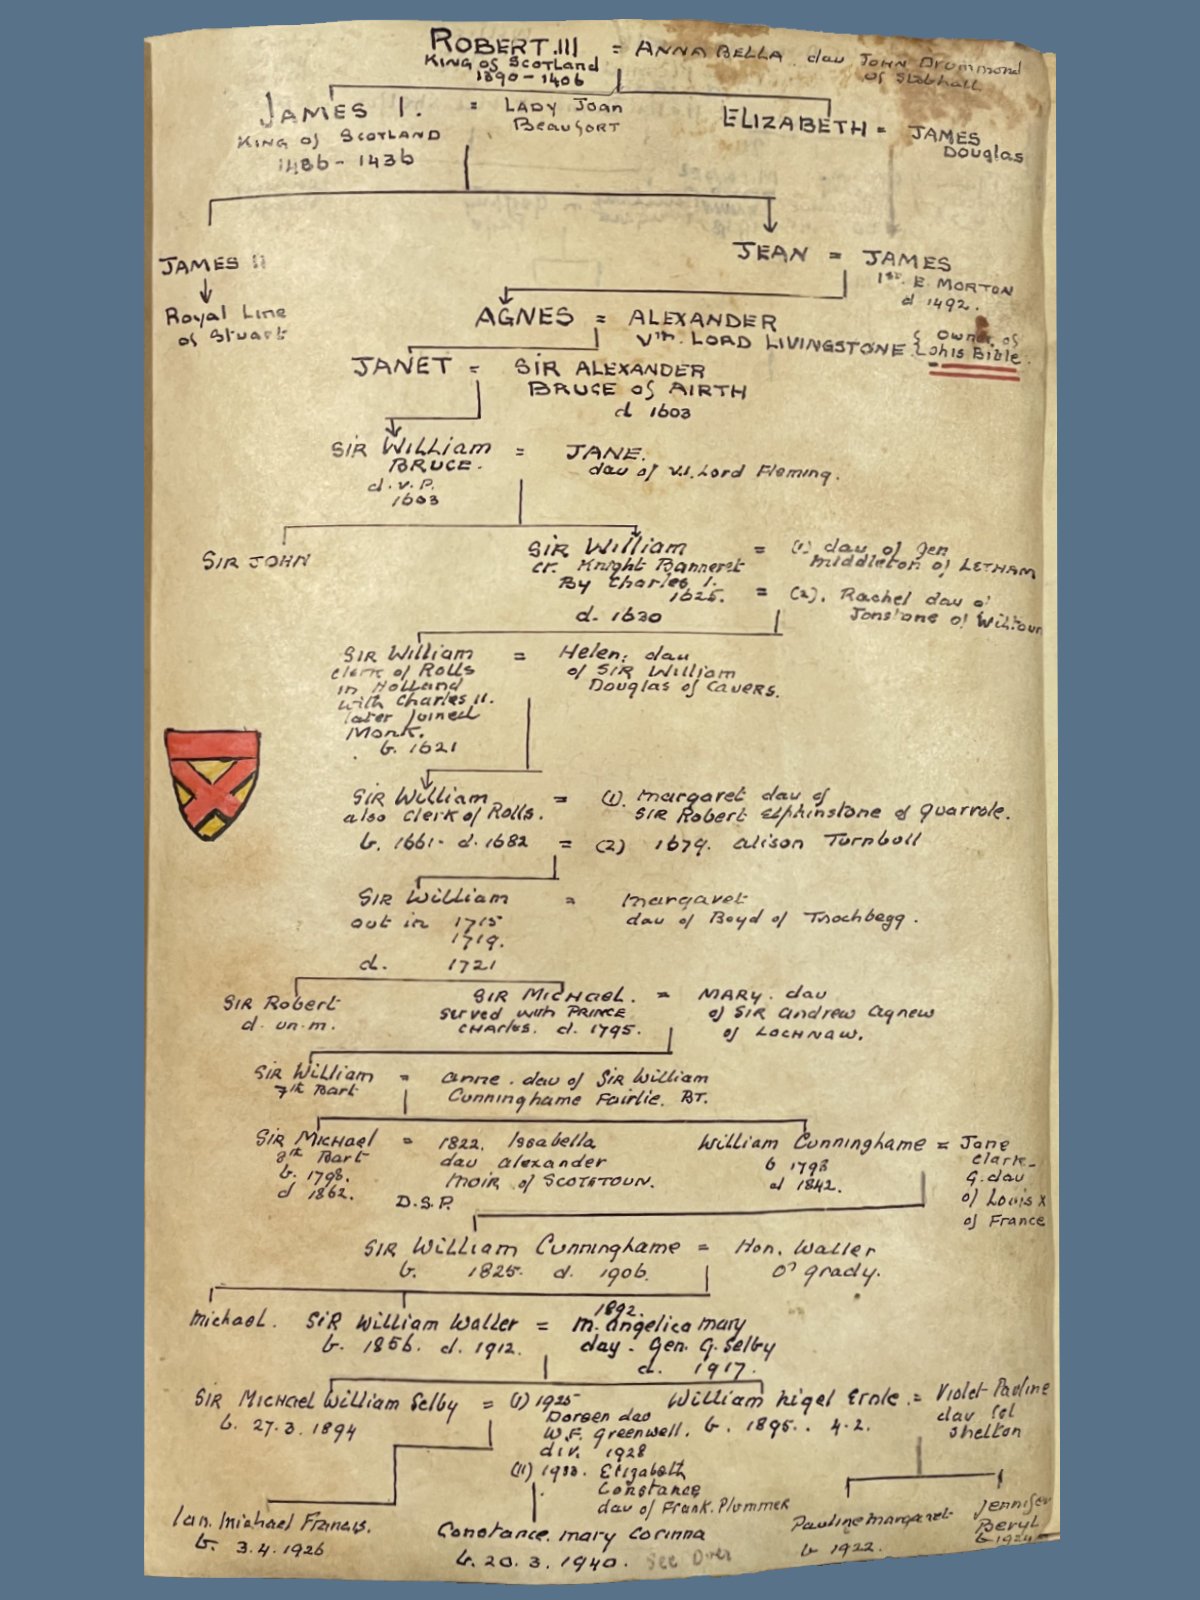 ROBERT.III = ANNABELLA. dau JOHN Drummond
KING of SCOTLAND of Stobhall
1390 - 1406
JAMES I. = LADY Joan ELIZABETH = JAMES
Beaufort Douglas
KING of SCOTLAND
1406 - 1436
JAMES II JEAN = JAMES
1st. E. MORTON
d 1492.
Royal Line
of Stuart
AGNES = ALEXANDER
Vth. LORD LIVINGSTONE { Owner of
{ this Bible.
JANET = SIR ALEXANDER
BRUCE of AIRTH
d 1603
SIR William = JANE.
BRUCE. dau of VI. Lord Fleming.
d.v.P.
1603
SIR JOHN SIR William = (1) dau of Jen
cr. Knight Banneret Middleton of LETHAM
By Charles I.
1625. = (2). Rachel dau of
d. 1630 Jonstone of
SIR William = Helen: dau
clerk of Rolls of SIR William
in Holland Douglas of Cavers.
with Charles II.
later joined
Monk.
b. 1621
SIR William = (1). Margaret dau of
also clerk of Rolls. SIR Robert Elphinstone of Quarrole.
b. 1661- d. 1682 = (2) 1679. Alison Turnboll
SIR William = Margaret
out in 1715 dau of Boyd of Trochbegg.
1719.
d. 1721
SIR Robert SIR MICHael. = MARY. dau
d. un.m. served with PRINCE of SIR Andrew Agnew
CHARLES. d. 1795. of LOCHNAW.
SIR William = Anne. dau of SIR William
7th Bart Cunninghame Fairlie. BT.
SIR MICHael = 1822. Issabella William Cunninghame = Jane
8th Bart dau Alexander b 1798 Clark-
b. 1798. Moir of SCOTSTOUN. d 1842. G.dau
d 1862. D.S.P. of Louis X
of France
SIR William Cunninghame = Hon. Waller
b. 1825. d. 1906. O'Grady.
Michael. SIR William Waller = 1892.
m. Angelica Mary
b. 1856. d. 1912. day. Gen. G. Selby
d. 1917.
SIR MICHael William Selby = (I) 1925 William Nigel Ernle = Violet Pauline
b. 27.3.1894 Doreen dau b. 1895.. 4.2. dau Col
W.F. Greenwell. Shelton
div. 1928
(II) 1933. Elizabeth
Constance
dau of Frank. Plummer
Ian. Michael Francis. Constance. Mary Corinna Pauline Margaret Jennifer
b. 3.4.1926 b. 20.3.1940. See Over b 1922. Beryl